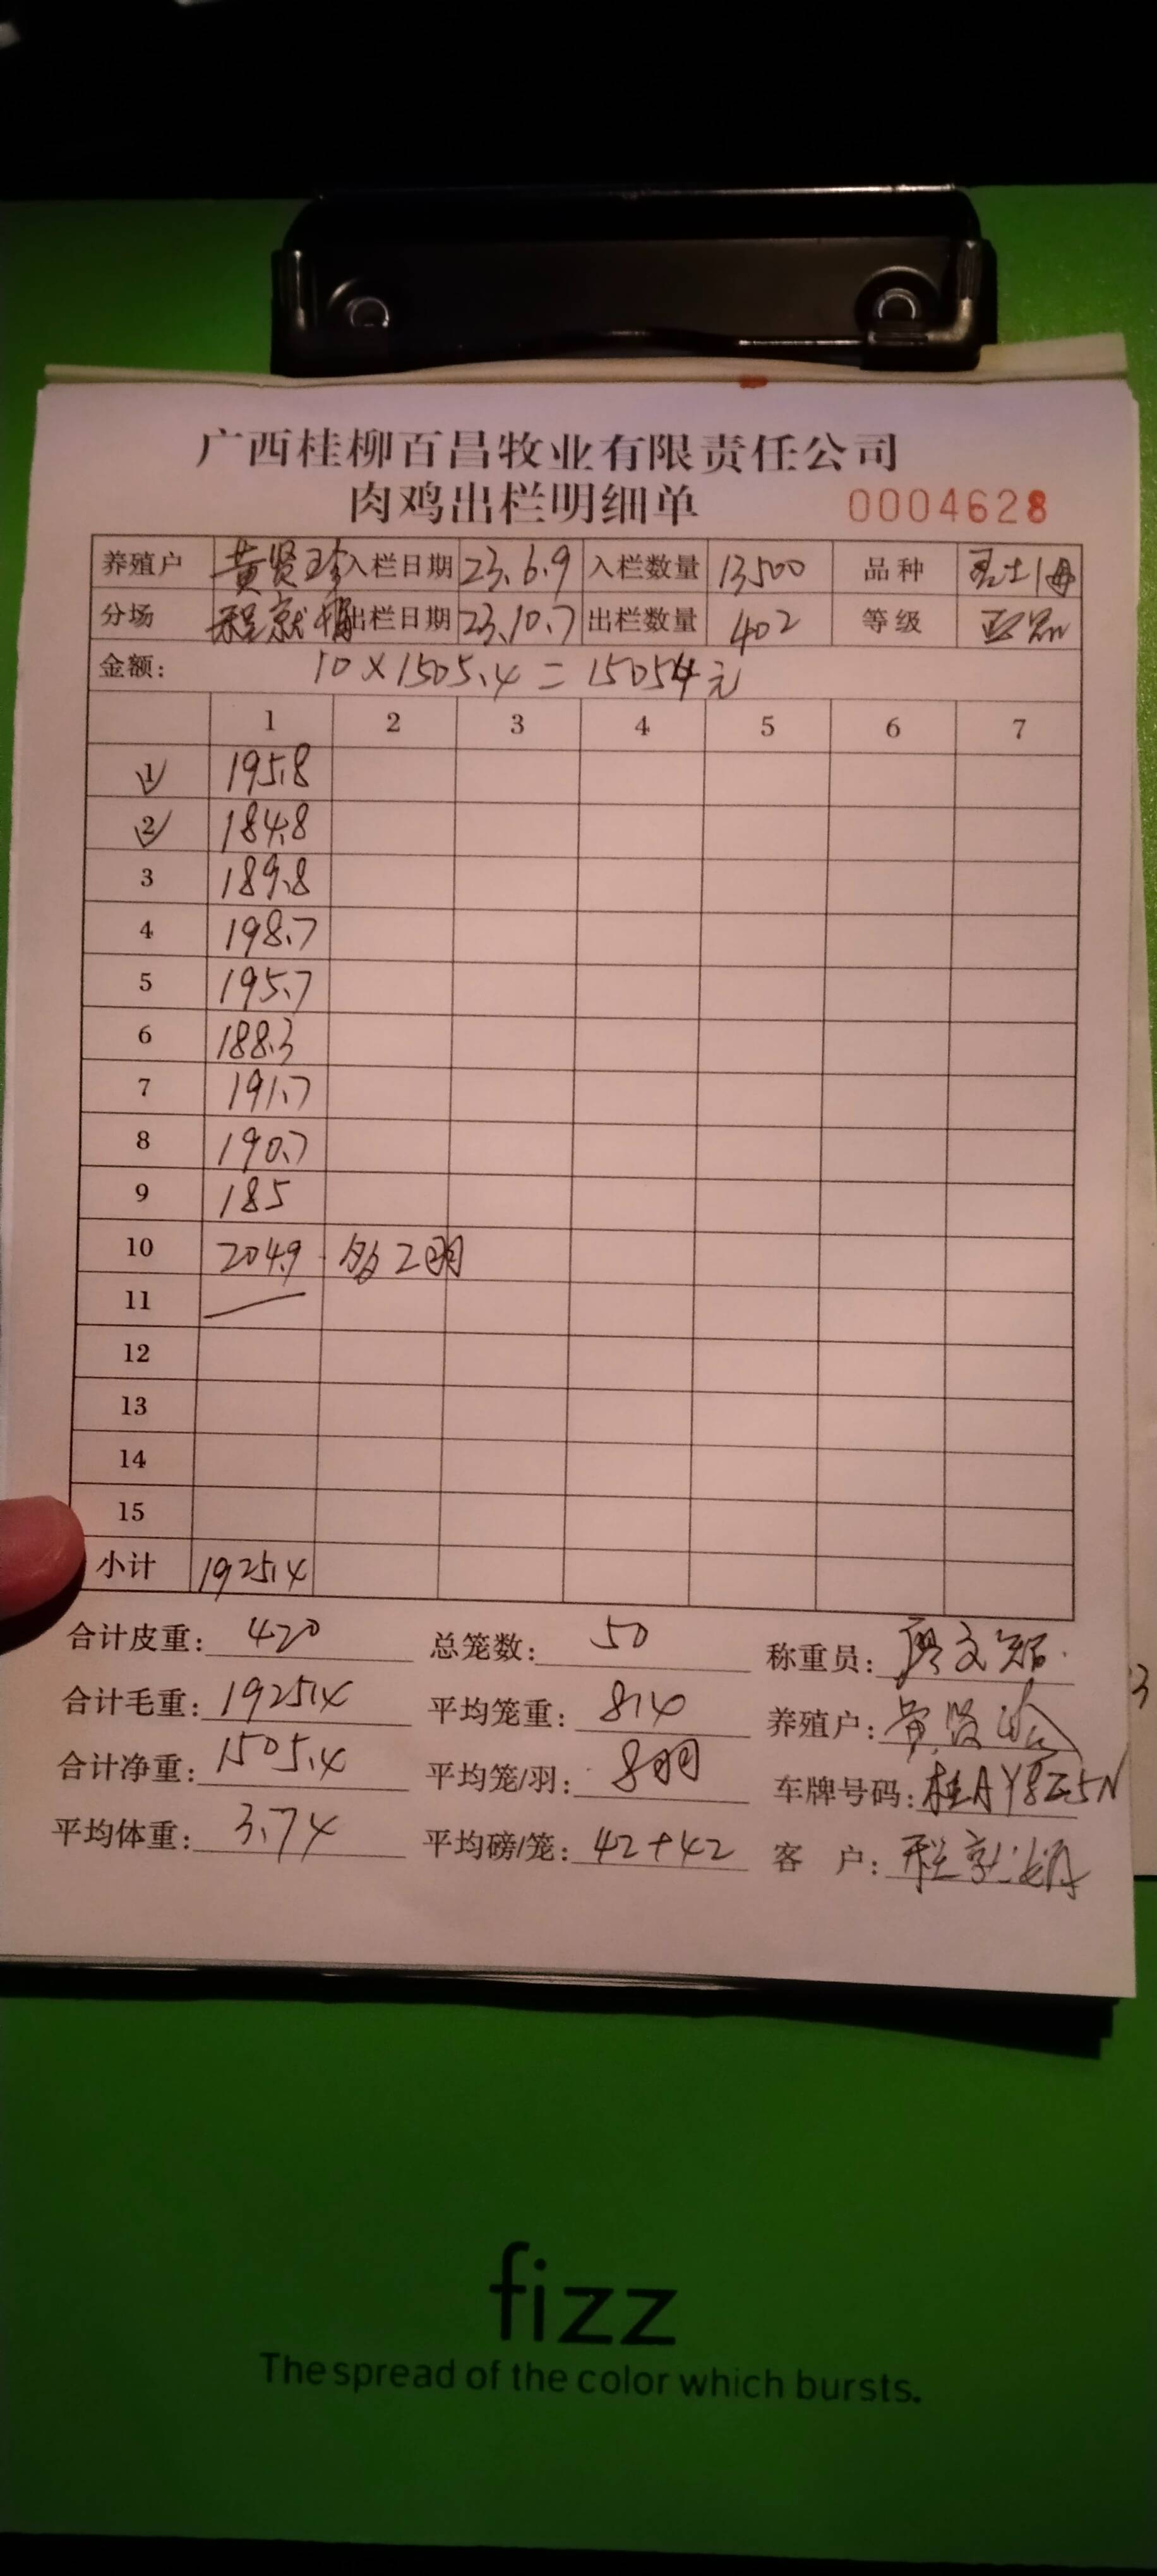 广西桂柳百昌牧业有限责任公司
肉鸡出栏明细单 0004628
养殖户 黄贤珍 入栏日期 23.6.9 入栏数量 13500 品种
分场 程就娟 出栏日期 23.10.7 出栏数量 402 等级
金额: 10×1505.4=15054元
1 2 3 4 5 6 7
1 195.8
2 184.8
3 189.8
4 198.7
5 195.7
6 188.3
7 191.7
8 190.7
9 185
10 204.9 多2羽
11
12
13
14
15
小计 1925.4
合计皮重: 420 总笼数: 50 称重员: 廖文
合计毛重: 1925.4 平均笼重: 8.4 养殖户: 黄贤珍
合计净重: 1505.4 平均笼/羽: 8羽 车牌号码: 桂AY8Z5N
平均体重: 3.74 平均磅/笼: 42+42 客户: 程就娟
fizz
The spread of the color which bursts.